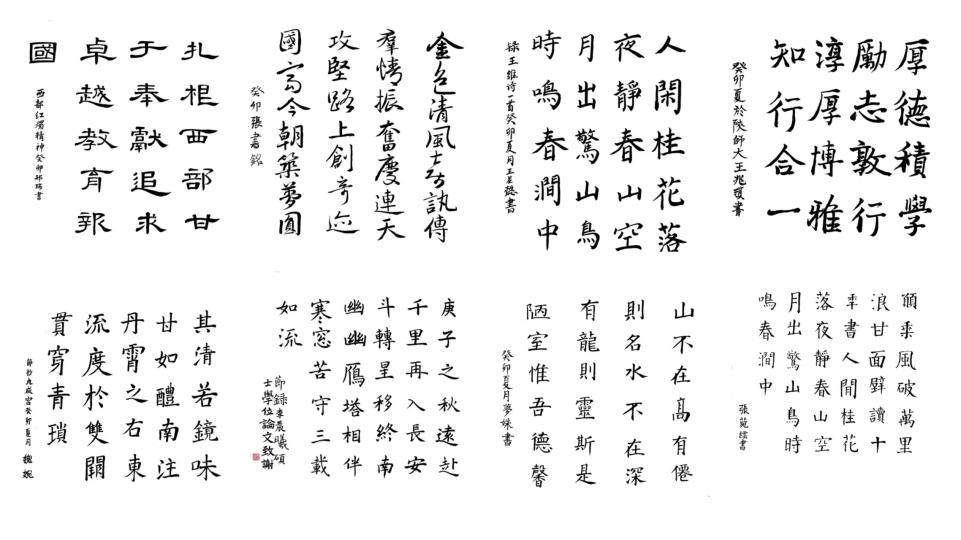 厚德積學
勵志敦行
淳厚博雅
知行合一
癸卯夏於陝師大王兆書
人閑桂花落
夜靜春山空
月出驚山鳥
時鳴春澗中
録王維诗一首癸卯夏月王星懿書
金色清風訊傳
羣情振奮慶連天
攻堅路上創奇迹
國富今朝築夢圓
癸卯張書銘
扎根西部甘
于奉獻追求
卓越教育報
國
西部红燭精神癸卯書
願乘風破萬里
浪甘面壁讀十
年書人閒桂花
落夜靜春山空
月出驚山鳥時
鳴春澗中
張苑書
山不在高有僊
則名水不在深
有龍則靈斯是
陋室惟吾德馨
癸卯夏月夢姝書
庚子之秋遠赴
千里再入長安
斗轉星移終南
幽幽鴈塔相伴
寒窓苦守三載
如流
節録李晨曦碩
士學位論文致謝
其清若鏡味
甘如醴南注
丹霄之右東
流度於雙闕
貫穿青瑣
節抄九成宮癸卯夏月婉